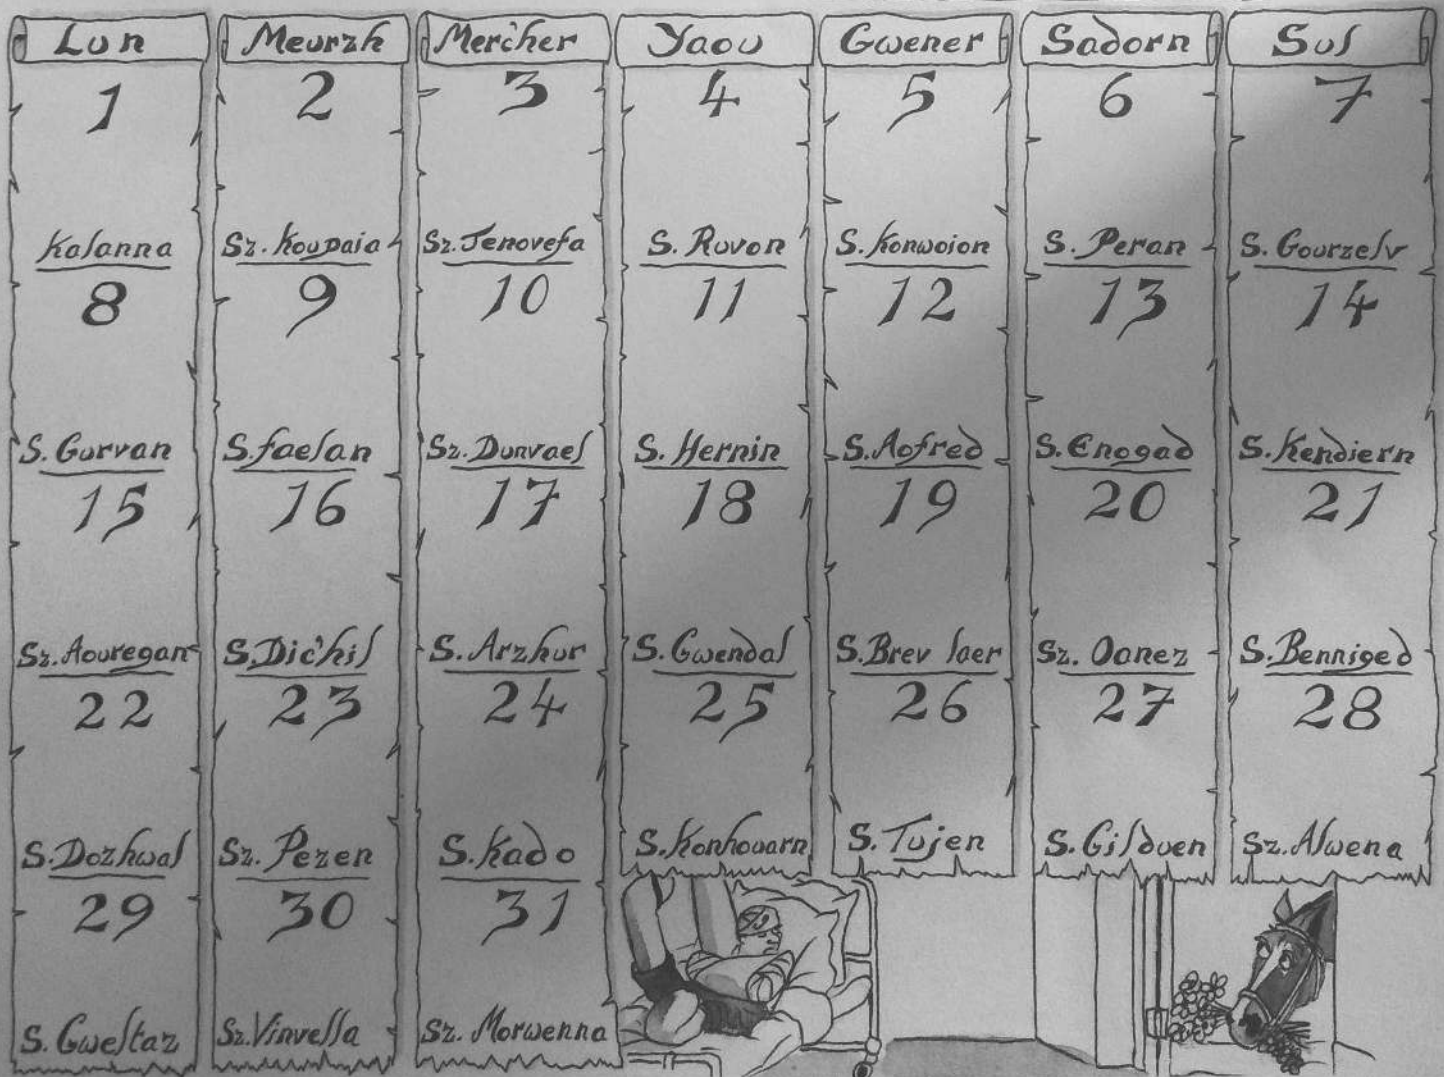 Lun Meurzh Merc'her Yaou Gwener Sadorn Sul
1 2 3 4 5 6 7
Kalanna Sz. Koupaia Sz. Jenovefa S. Ruvon S. Konwoion S. Peran S. Gourzelv
8 9 10 11 12 13 14
S. Gurvan S. Faelan Sz. Dunvael S. Hernin S. Aofred S. Enogad S. Kendiern
15 16 17 18 19 20 21
Sz. Aouregan S. Dic'hil S. Arzhur S. Gwendal S. Brev laer Sz. Oanez S. Benniged
22 23 24 25 26 27 28
S. Dozhwal Sz. Pezen S. Kado S. Konhouarn S. Tujen S. Gilduen Sz. Alwena
29 30 31
S. Gweltaz Sz. Vinvella Sz. Morwenna